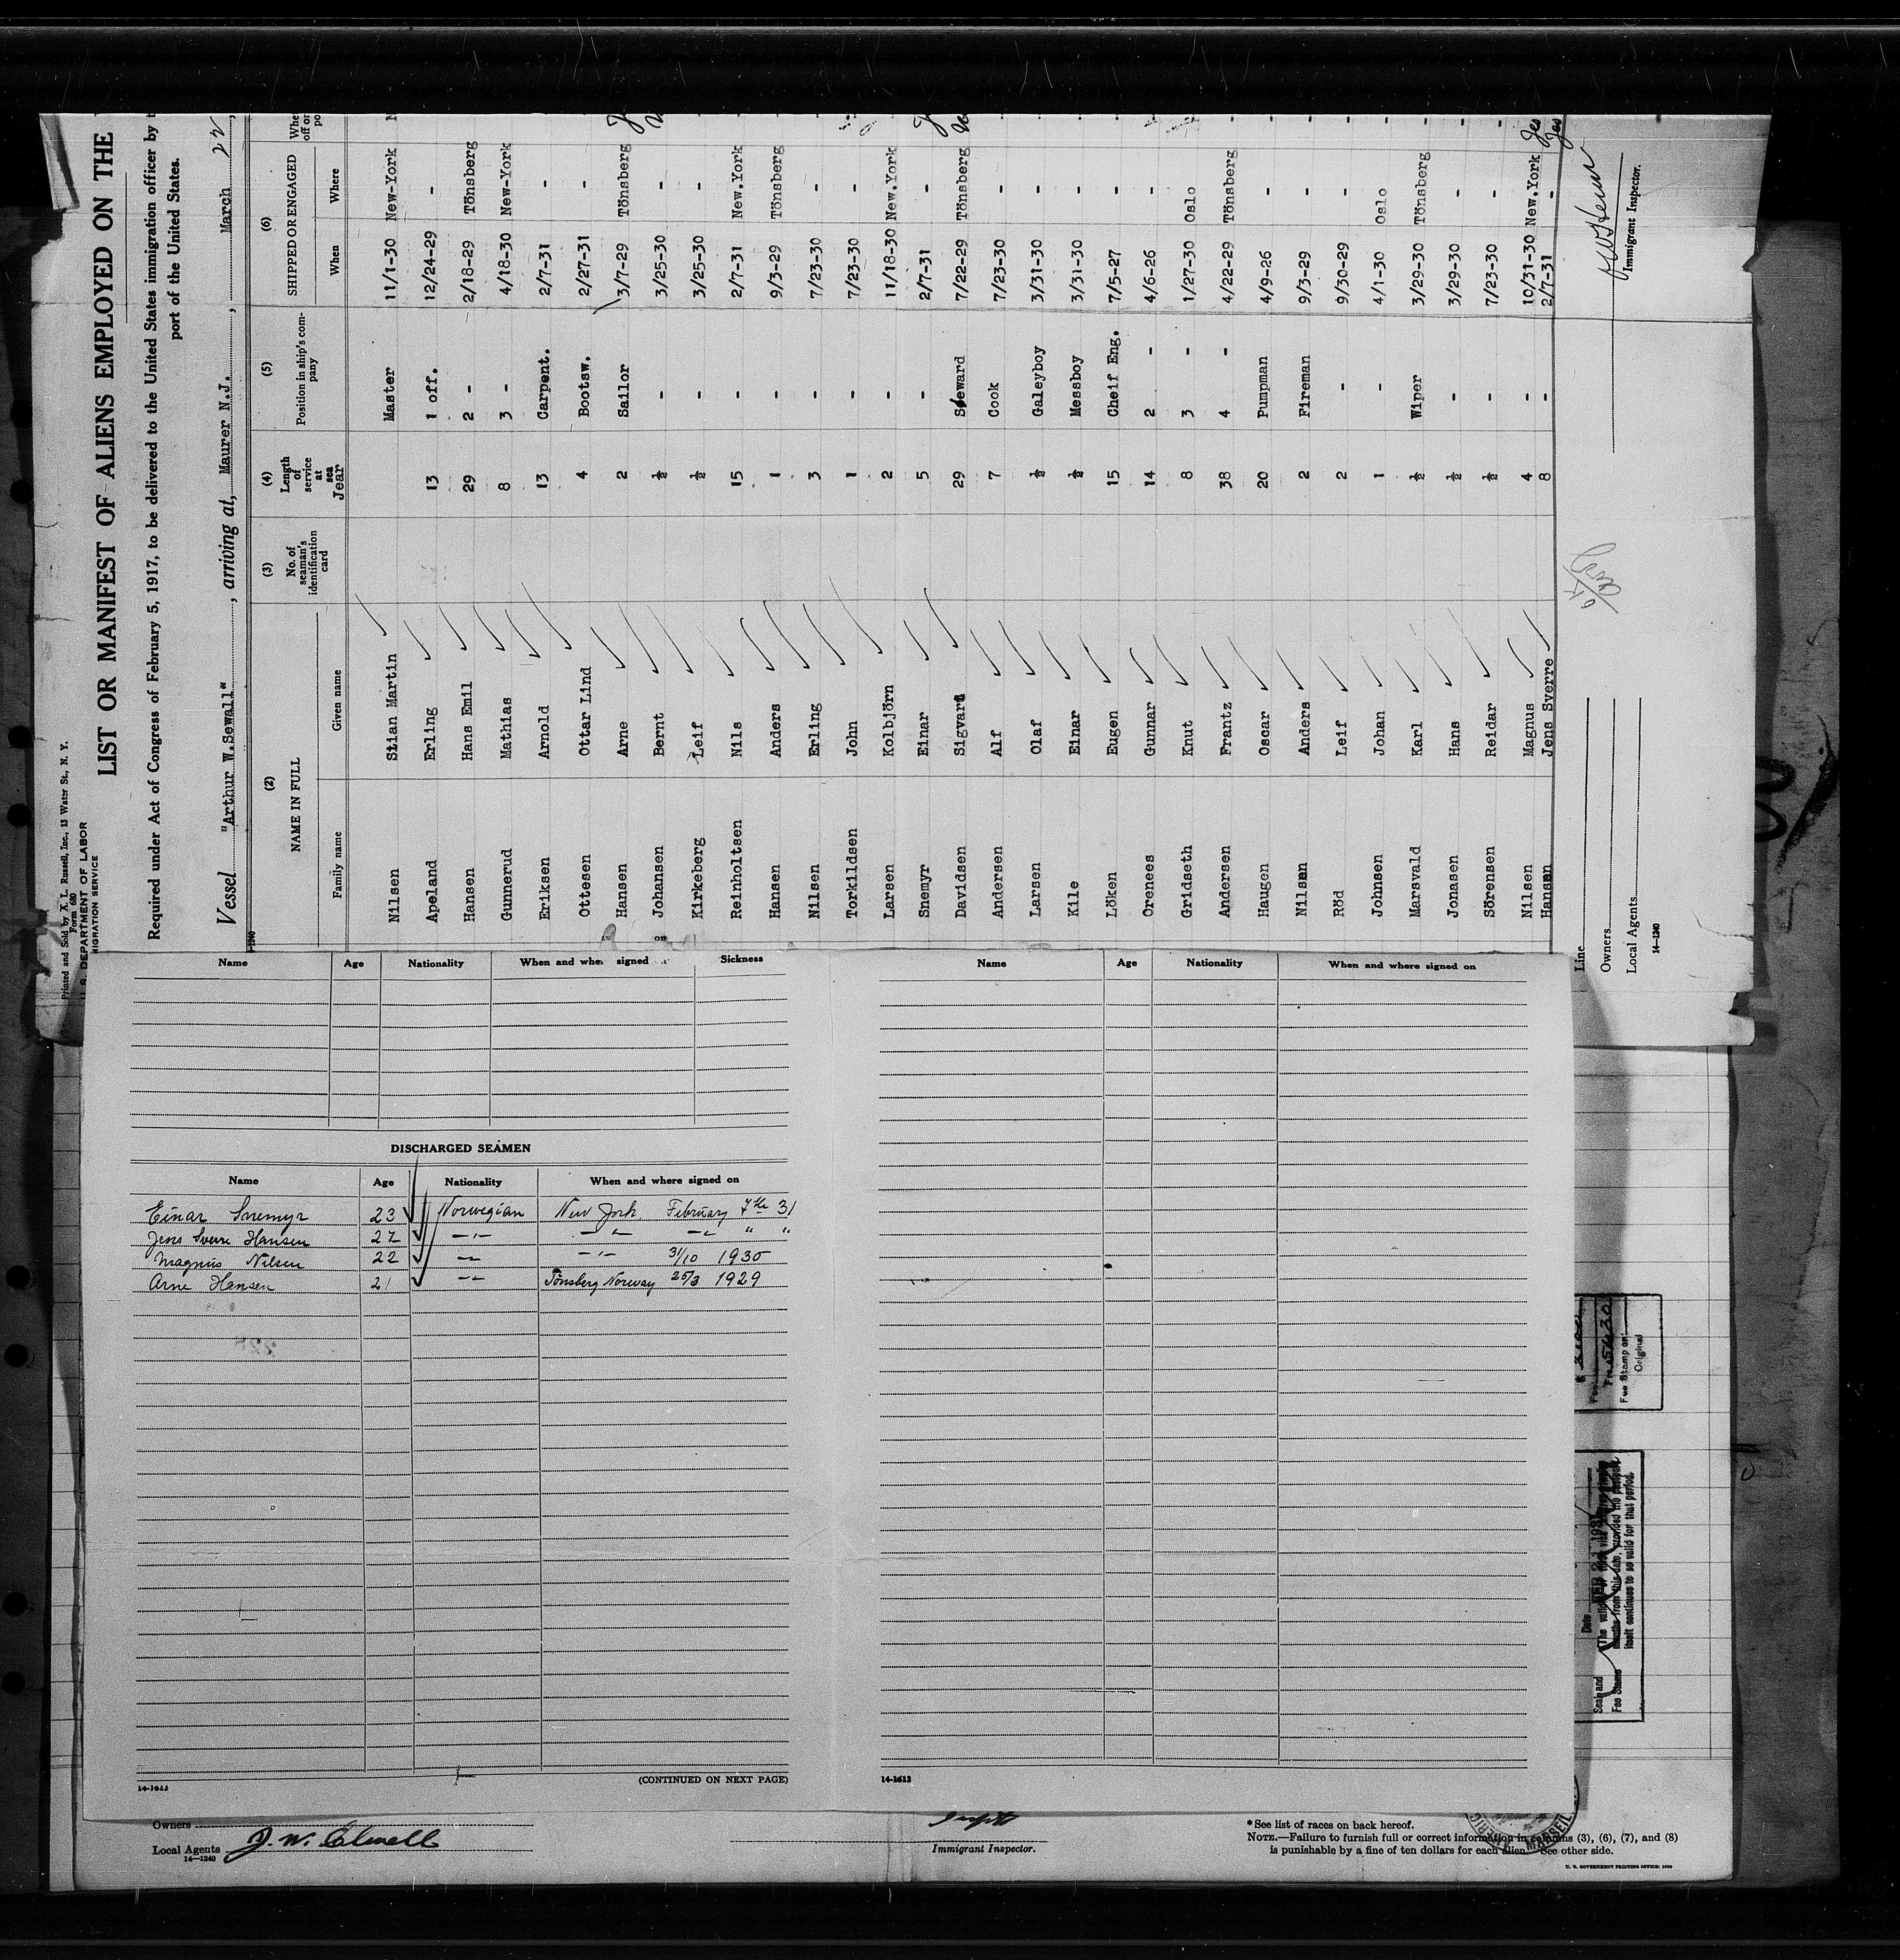 Printed and Sold by A. L. Russell, Inc., 13 Water St., N. Y.
Form 680
U. S. DEPARTMENT OF LABOR
MIGRATION SERVICE
LIST OR MANIFEST OF ALIENS EMPLOYED ON THE
Required under Act of Congress of February 5, 1917, to be delivered to the United States immigration officer by
port of the United States.
Vessel "Arthur W.Sewall", arriving at, Maurer N.J., March 22,
(2) (3) (4) (5) (6)
NAME IN FULL No. of seaman's identification card Length of service at sea Jear Position in ship's company SHIPPED OR ENGAGED
Family name Given name When Where
Nilsen Stian Martin Master 11/1-30 New-York
Apeland Erling 13 1 off. 12/24-29 -
Hansen Hans Emil 29 2 - 2/18-29 Tönsberg
Gunnerud Mathias 8 3 - 4/18-30 New-York
Eriksen Arnold 13 Carpent. 2/7-31 -
Ottesen Ottar Lind 4 Bootsw. 2/27-31 -
Hansen Arne 2 Sailor 3/7-29 Tönsberg
Johansen Bernt ½ - 3/25-30 -
Kirkeberg Leif ½ - 3/25-30 -
Reinholtsen Nils 15 - 2/7-31 New.York
Hansen Anders 1 - 9/3-29 Tönsberg
Nilsen Erling 3 - 7/23-30 -
Torkildsen John 1 - 7/23-30 -
Larsen Kolbjörn 2 - 11/18-30 New.York
Snemyr Einar 5 - 2/7-31 -
Davidsen Sigvart 29 Steward 7/22-29 Tönsberg
Andersen Alf 7 Cook 7/23-30 -
Larsen Olaf ½ Galeyboy 3/31-30 -
Kile Einar ½ Messboy 3/31-30 -
Löken Eugen 15 Cheif Eng. 7/5-27 -
Orenees Gunnar 14 2 - 4/6-26 -
Gridseth Knut 8 3 - 1/27-30 Oslo
Andersen Frantz 38 4 - 4/22-29 Tönsberg
Haugen Oscar 20 Pumpman 4/9-26 -
Nilsen Anders 2 Fireman 9/3-29 -
Röd Leif 2 - 9/30-29 -
Johnsen Johan 1 - 4/1-30 Oslo
Marsvald Karl ½ Wiper 3/29-30 Tönsberg
Jonasen Hans ½ - 3/29-30 -
Sörensen Reidar ½ - 7/23-30 -
Nilsen Magnus 4 - 10/31-30 New.York Jes
Hansen Jens Sverre 8 - 2/7-31 - Jes
Line
Owners
Local Agents
14—1240
Immigrant Inspector.
Name Age Nationality When and where signed Sickness
DISCHARGED SEAMEN
Name Age Nationality When and where signed on
Einar Snemyr 23 Norwegian New York February 7th 31
Jens Sverre Hansen 27 -"- -"- -"- " "
Magnus Nilsen 22 -"- -"- 31/10 1930
Arne Hansen 21 -"- Tönsberg Norway 25/3 1929
14-1613
(CONTINUED ON NEXT PAGE)
Name Age Nationality When and where signed on
14-1613
Fee Stamp on
Original
Date FEB 21
Seal and
Fee Stamp
months from this date, provided the passport
itself continues to be valid for that period.
Owners
Local Agents
14—1240
Immigrant Inspector.
*See list of races on back hereof.
NOTE.—Failure to furnish full or correct information in columns (3), (6), (7), and (8)
is punishable by a fine of ten dollars for each alien. See other side.
U. S. GOVERNMENT PRINTING OFFICE: 1930